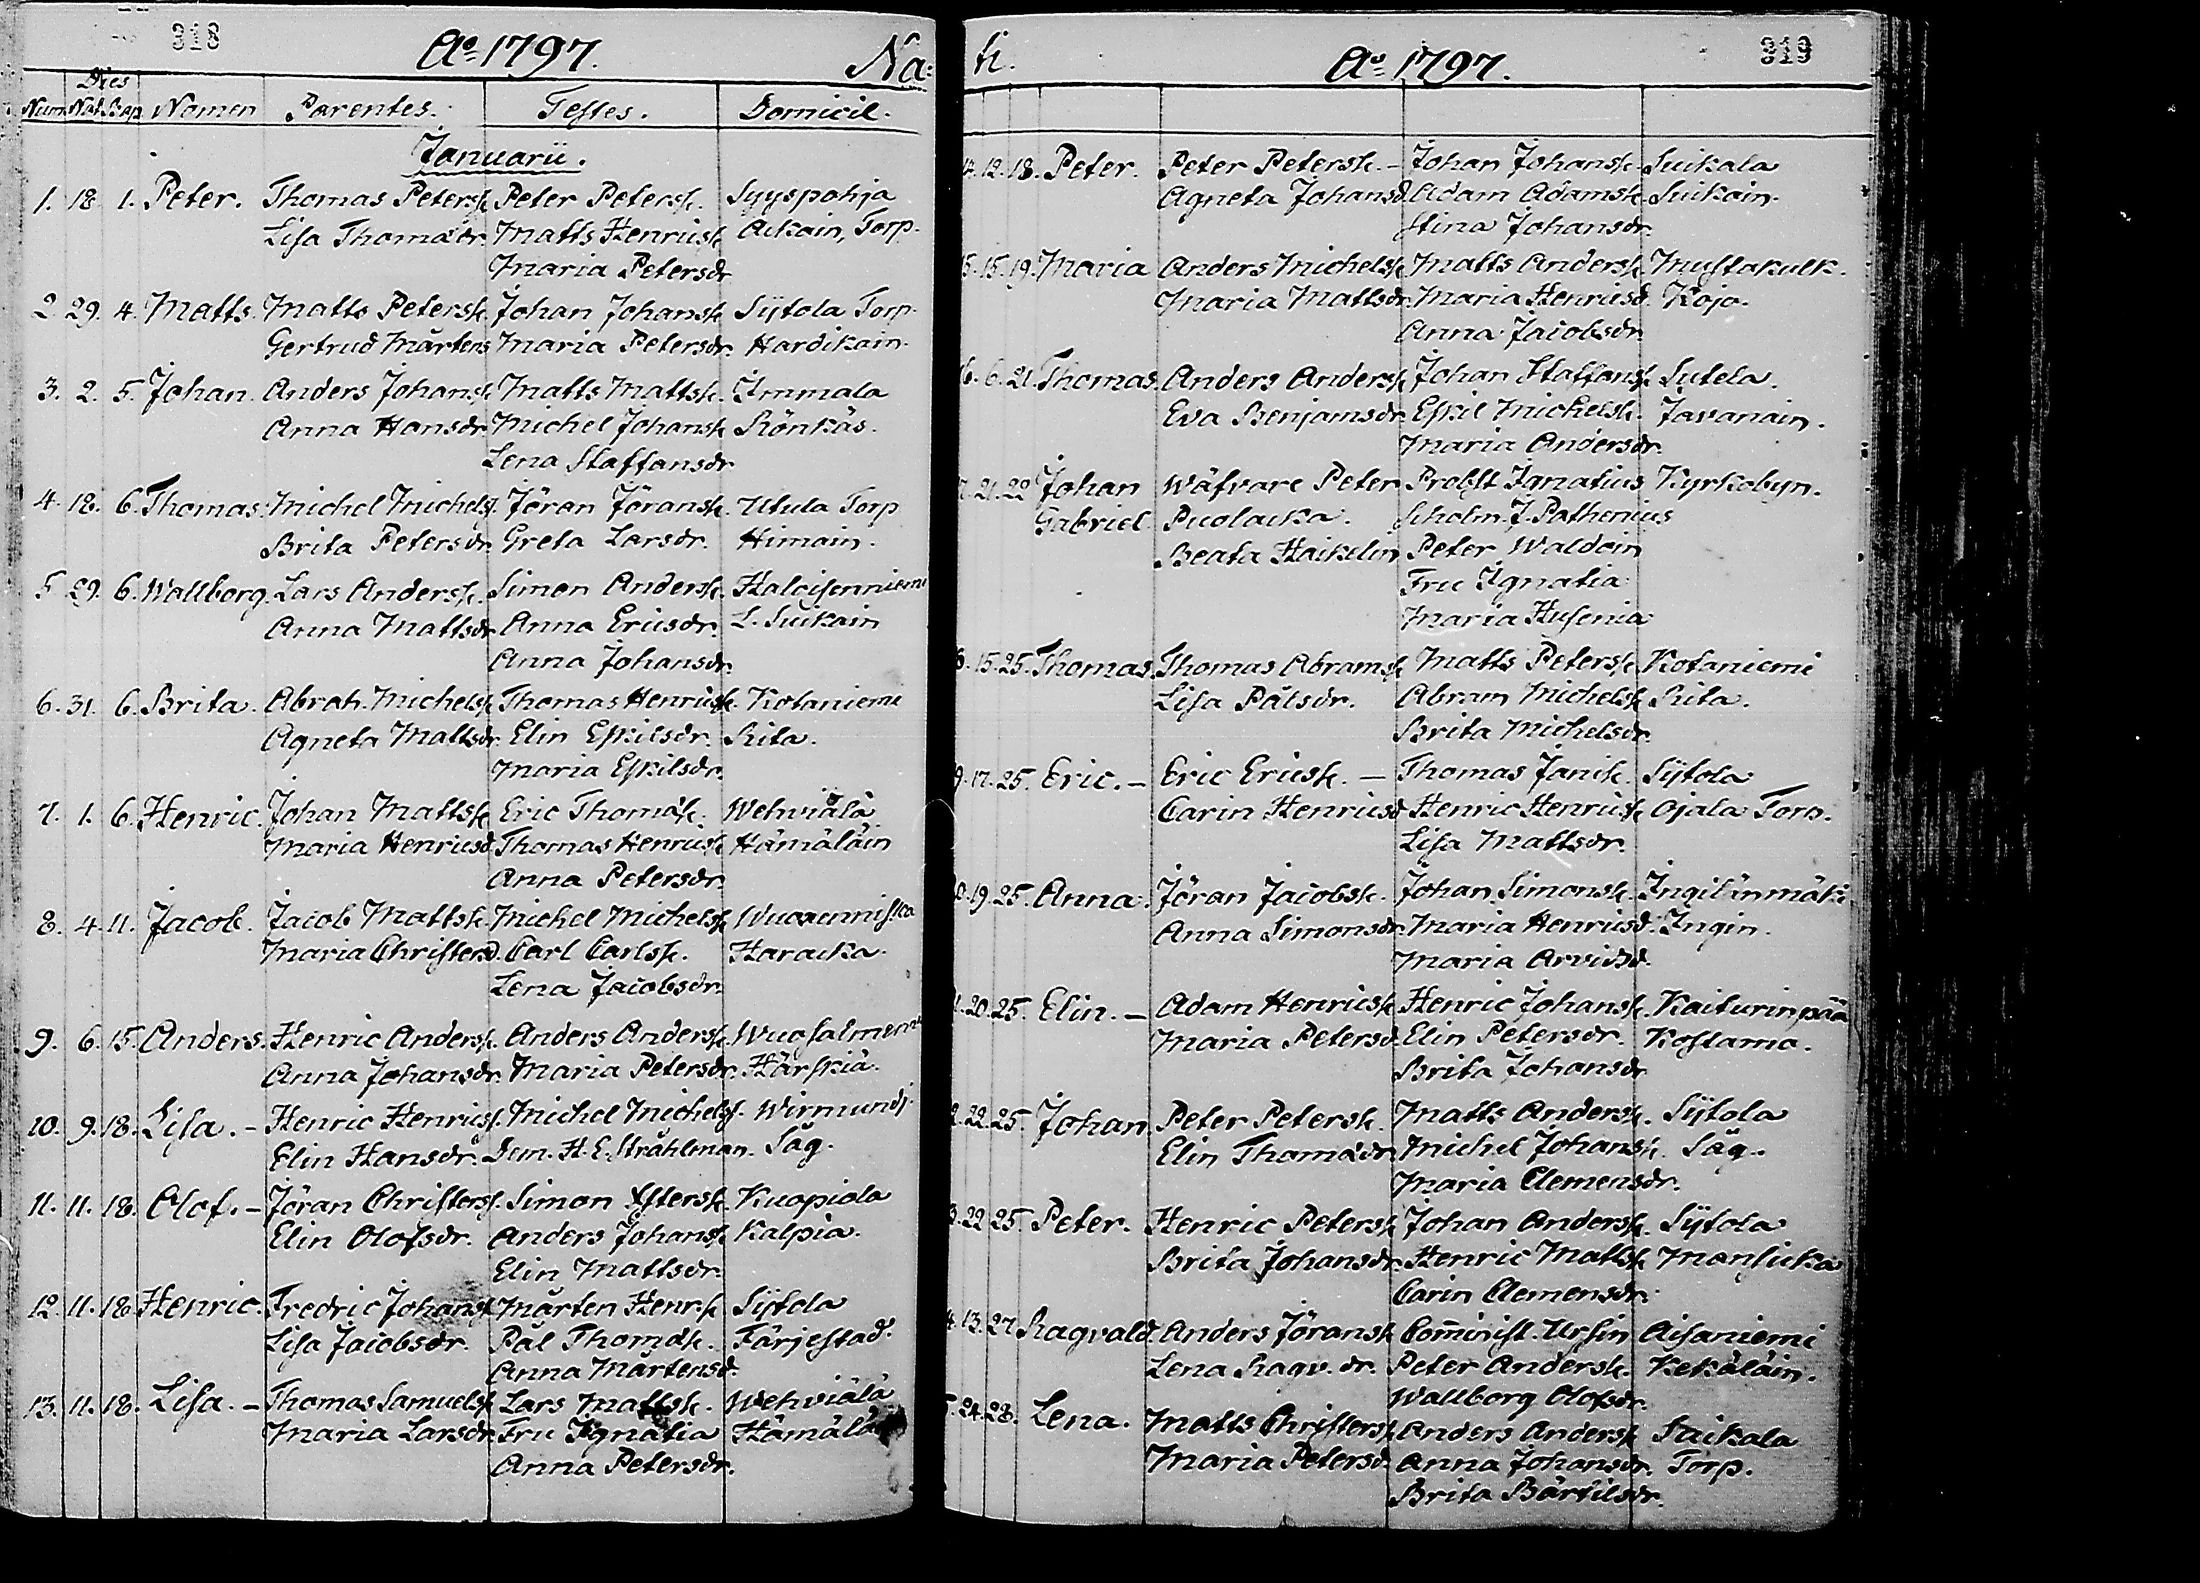 318
Ao 1797.
Na:
Dies
Num Nat. Bap. Nomen Parentes. Testes. Domicil.
Januarii.
1. 18. 1. Peter. Thomas Peterss. Peter Peterss. Syyspohja
Lisa Thomædr. Matts Henricss. Torp.
Maria Petersdr
2 29. 4. Matts. Matts Peterss. Johan Johanss. Sijtola Torp.
Gertrud Mårtens Maria Petersdr. Hardikain.
3. 2. 5. Johan. Anders Johanss. Matts Mattss. Immala
Anna Hansdr. Michel Johanss. Rönkäs.
Lena Staffansdr
4. 18. 6. Thomas. Michel Michelss. Jöran Jöranss. Utula Torp
Brita Petersdr. Greta Larsdr. Himain.
5 29. 6. Wallborg. Lars Anderss. Simon Anderss. Haloisenniemi
Anna Mattsdr. Anna Ericsdr. L. Suikain
Anna Johansdr.
6. 31. 6. Brita. Abrah. Michelss. Thomas Henricss. Kotaniemi
Agneta Mattsdr. Elin Eskilsdr. Rita.
Maria Eskilsdr.
7. 1. 6. Henric. Johan Mattss. Eric Thomæss. Wehviälä
Maria Henricsd. Thomas Henricss. Hämäläin
Anna Petersdr.
8. 4. 11. Jacob. Jacob Mattss. Michel Michelss. Wuoxenniska
Maria Christersd. Carl Carlss. Haracka.
Lena Jacobsdr.
9. 6. 15. Anders. Henric Anderss. Anders Anderss. Wuosalmemi
Anna Johansdr. Maria Petersdr. Härskiä.
10. 9. 18. Lisa. - Henric Henricss. Michel Michelss. Wirmundj
Elin Hansdr. Dem. H. E. Stråhlman. Såg.
11. 11. 18. Olof. - Jöran Christerss. Simon Xsterss. Kuopiala
Elin Olofsdr. Anders Johanss. Kalpia.
Elin Mattsdr.
12. 11. 18. Henric. Fredric Johanss. Mårten Henr.ss. Sijtola
Lisa Jacobsdr. Pål Thomæss. Färjestad.
Anna Mårtensd.
13. 11. 18. Lisa. - Thomas Samuelss. Lars Mattss. Wehviälä
Maria Larsdr. Fru Ignatia
Anna Petersdr.
319
ti.
Ao 1797.
12. 18. Peter. Peter Peterss. - Johan Johanss. Suikala
Agneta Johansd. Adam Adamss. Suikain.
Stina Johansdr.
15. 15. 19. Maria Anders Michelss. Matts Anderss. Mustakulk.
Maria Mattsdr. Maria Henricsd. Kojo.
Anna Jacobsdr.
6. 21. Thomas. Anders Anderss. Johan Staffanss. Sutela.
Eva Benjamsdr. Eskil Michelss. Javanain.
Maria Andersdr.
21. 22 Johan Wäfvare Peter Probst Ignatius Kyrkobyn.
Gabriel. Scholm. J. Pathenius
Beata Haikelin Peter Waldoin
Fru Ignatia
Maria Husenia
15. 25. Thomas. Thomas Abramss. Matts Peterss. Kotaniemi
Lisa Pålsdr. Abram Michelss. Rita.
Brita Michelsdr.
17. 25. Eric. - Eric Ericss. - Thomas Janss. Sijtola
Carin Henricsd. Henric Henricss. Ojala Torp.
Lisa Mattsdr.
19. 25. Anna. Jöran Jacobss. Johan Simonss. Ingilänmäki
Anna Simonsdr. Maria Henricsd. Ingin.
Maria Arvidsd.
20. 25. Elin. - Adam Henricss. Henric Johanss. Kaiturinpää
Maria Petersd. Elin Petersdr. Kostama.
Brita Johansdr
22. 25. Johan Peter Peterss. Matts Anderss. Sijtola
Elin Thomædr. Michel Johanss. Såg.
Maria Clemensdr.
22 25. Peter. Henric Peterss. Johan Anderss. Sijtola
Brita Johansdr. Henric Mattss. Mansicka
Carin Clemensdr.
13. 27. Ragvald. Anders Jöranss. Com̅inist. Ursin Aisaniemi
Lena Ragv.dr. Peter Anderss. Kekäläin.
Wallborg Olofsdr.
24. 28. Lena. Matts Christerss. Anders Anderss. Saikala
Maria Petersd. Anna Johansdr. Torp.
Brita Bärtilsdr.